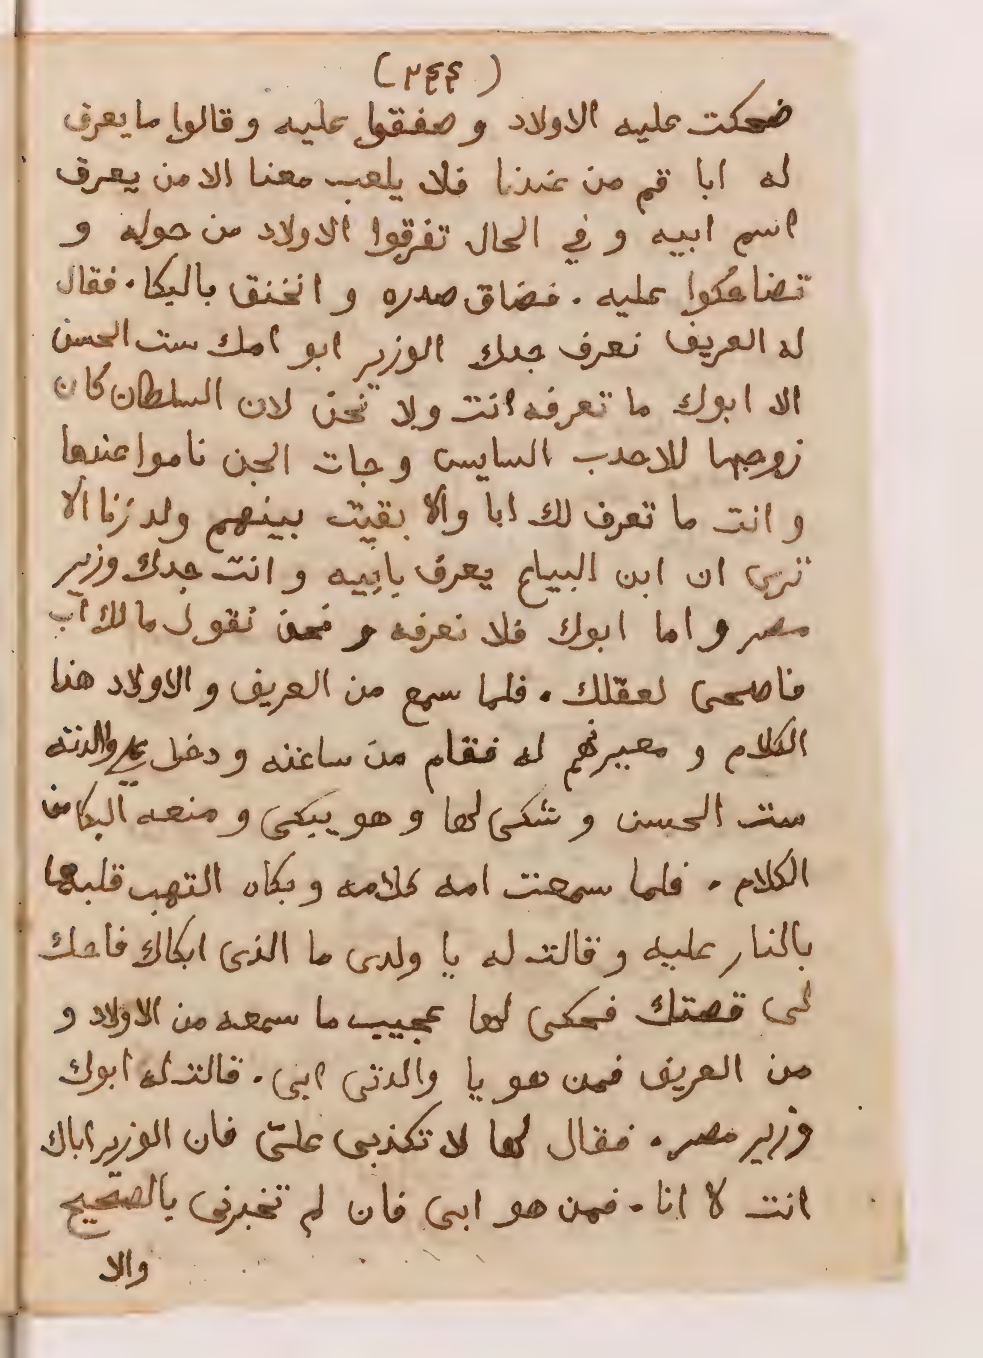 (٢٤٤)
ضحكت عليه الاولاد و صفقوا عليه و قالوا ما يعرف
له ابا قم من عندنا فلا يلعب معنا الا من يعرف
اسم ابيه و في الحال تفرقوا الاولاد من حوله و
تضاحكوا عليه . فضاق صدره و انخنق بالبكا . فقال
له العريف نعرف جدك الوزير ابو امك ست الحسن
الا ابوك ما تعرفه انت ولا نحن لان السلطان كان
زوجها للاحدب السايس و جات الجن ناموا عندها
و انت ما تعرف لك ابا والا بقيت بينهم ولد زنا ألا
ترى ان ابن البياع يعرف بابيه و انت جدك وزير
مصر و اما ابوك فلا نعرفه و نحن نقول مالك اب
فاصحى لعقلك . فلما سمع من العريف و الاولاد هذا
الكلام و معيرتهم له فقام من ساعته و دخل علي والدته
ست الحسن و شكى لها و هو يبكى و منعه البكا من
الكلام . فلما سمعت امه كلامه و بكاه التهب قلبها
بالنار عليه و قالت له يا ولدى ما الذى ابكاك فاحك
لى قصتك فحكى لها عجيب ما سمعه من الاولاد و
من العريف فمن هو يا والدتى ابى . قالت له ابوك
وزير مصر . فقال لها لا تكذبى علىّ فان الوزير اباك
انت لا انا . فمن هو ابى فان لم تخبرنى بالصحيح
والا